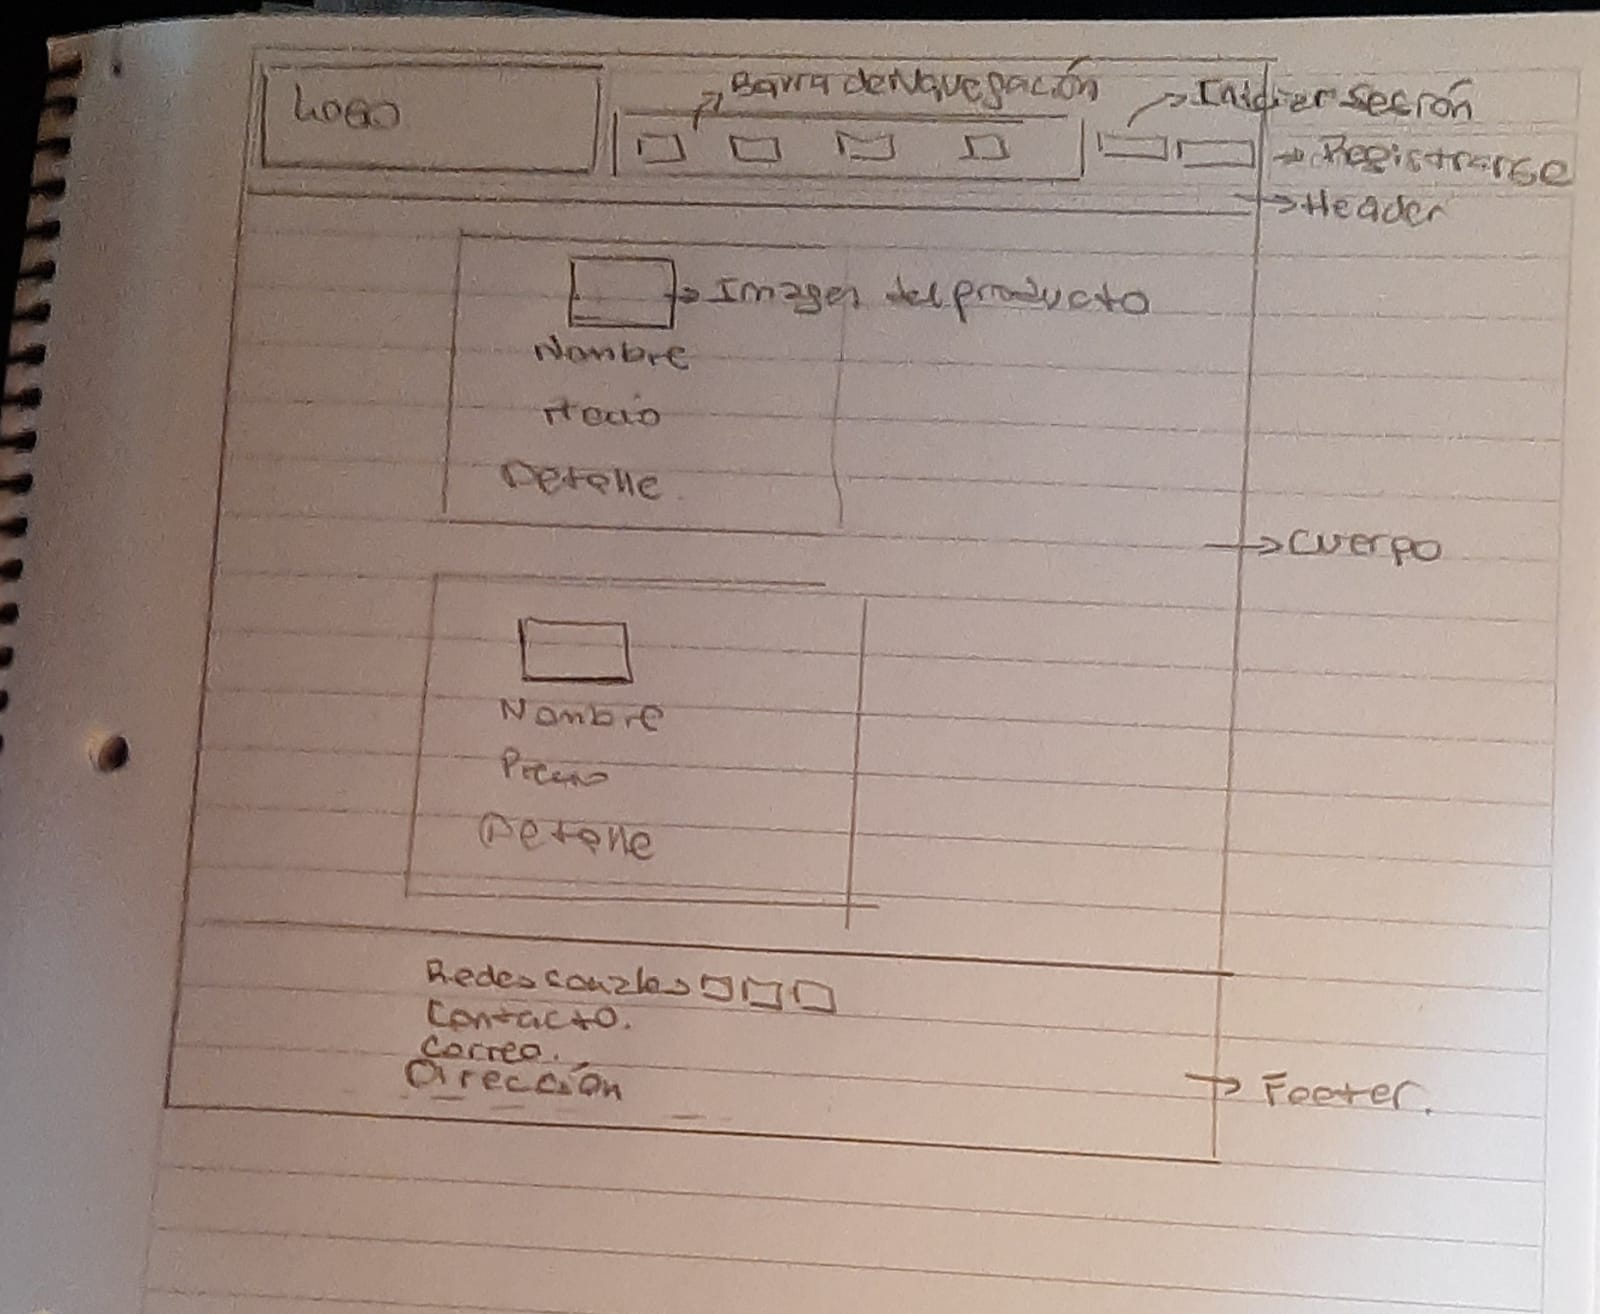 Logo
Barra de Navegación
Iniciar Sesión
Registrarse
Header
Imagen del producto
Nombre
Precio
Detalle
Cuerpo
Nombre
Precio
Detalle
Redes sociales
Contacto.
Correo.
Dirección
Footer.